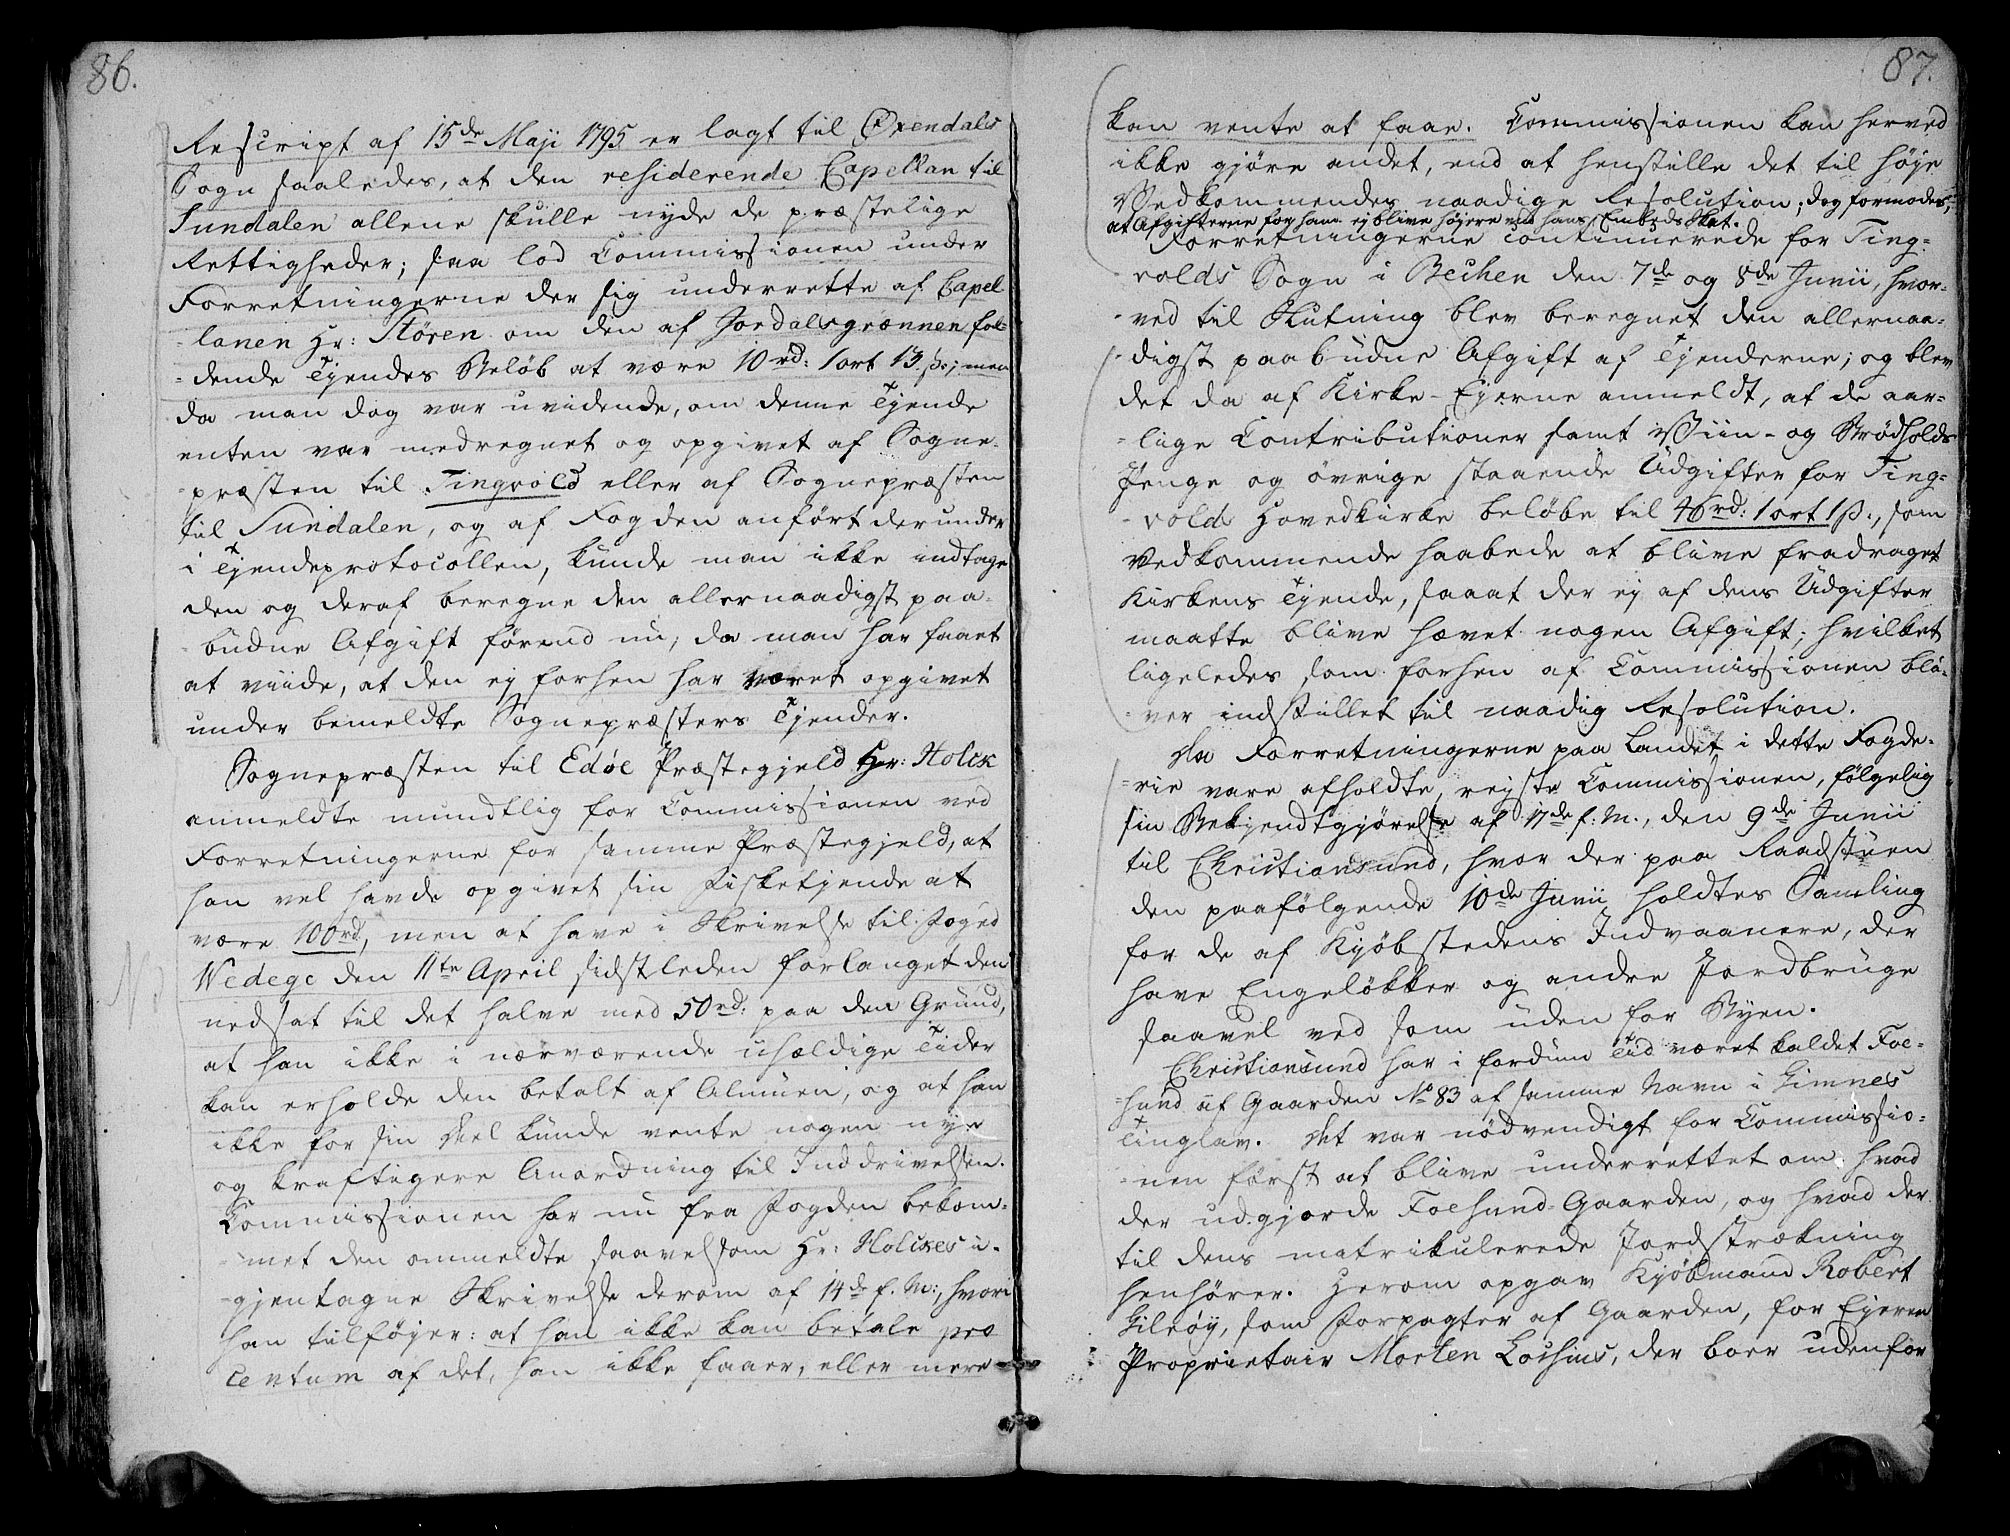 86.
Rescript af 15de Maji 1795 er lagt til Øxendals
Sogn saaledes, at den residerende Capellan til
Sundalen allene skulle nyde de præstelige
Rettigheder; saa lod Commissionen under
Forretningerne der sig underrette af Capel
lanen Hr: Stören om den af Jordalsgrønnen fal-
dende Tjendes Beløb at være 10 rd: 1 ort 13 s:; men
da man dog var uvidende, om denne Tjende
enten var medregnet og opgivet af Sogne-
præsten til Tingvold eller af Sognepræsten
til Sundalen, og af Fogden anført derunder
i Tjendeprotocollen, kunde man ikke indtage
den og deraf beregne den allernaadigst paa-
budne Afgift førend nu, da man har faaet
at viide, at den ej forhen har været opgivet
under bemeldte Sognepræsters Tjender.
Sognepræsten til Edøe Præstegjeld Hr: Holck
anmeldte mundtlig for Commissionen ved
Forretningerne for samme Præstegjeld, at
han vel havde opgivet sin Fisketjende at
være 100 rd, men at have i Skrivelse til Foged
Wedege den 11te April sidstleden forlanget den
nedsat til det halve med 50 rd: paa den Grund,
at han ikke i nærværende uhældige Tider
kan erholde den betalt af Almuen, og at han
ikke for sin Deel kunde vente nogen nye
og kraftigere Anordning til Inddrivelsen.
Commissionen har nu fra Fogden bekom-
met den anmeldte saavelsom Hr: Holckes i-
gjentagne Skrivelse derom af 14de f. M:, hvori
han tilføjer: at han ikke kan betale pro
centum af det, han ikke faaer, eller mere
87.
kan vente at faae. Commissionen kan herved
ikke gjöre andet, end at henstille det til høje
Vedkommendes naadige Resolution; dog formodes,
at Afgifterne for ham ej blive højere end hans Embeds Skat.
Forretningerne continuerede for Ting-
volds Sogn i Bechen den 7de og 8de Junii, hvor-
ved til Slutning blev beregnet den allernaa-
digst paabudne Afgift af Tjenderne; og blev
det da af Kirke-Ejerne anmeldt, at de aar-
lige Contributioner samt Viin- og Brødholds
Penge og övrige staaende Udgifter for Ting-
volds Hovedkirke beløbe til 46 rd: 1 ort 1 s:, som
Vedkommende haabede at blive fradraget
Kirkens Tjende, saaat der ej af dens Udgifter
maatte blive hævet nogen Afgift; hvilket
ligeledes som forhen af Commissionen bli-
ver indstillet til naadig Resolution.
Da Forretningerne paa Landet i dette Fogde-
rie vare afholdte, rejste Commissionen, følgelig
sin Bekjendtgjörelse af 17de f. M., den 9de Junii
til Christiansund, hvor der paa Raadstuen
den paafölgende 10de Junii holdtes Samling
for de af Kjöbstedens Indvaanere, der
have Engelökker og andre Jordbruge
saavel ved som uden for Byen.
Christiansund har i fordum Tid været kaldet Foe-
sund af Gaarden No 83 af samme Navn i Gimnes
Tinglav. Det var nödvendigt for Commissio-
nen först at blive underrettet om, hvad
der udgjorde Foesund-Gaarden, og hvad der
til dens matrikulerede Jordstrækning
henhörer. Herom opgav Kjöbmand Robert
Gilröy, som Forpagter af Gaarden, for Ejeren
Proprietair Morten Lossius, der boer udenfor